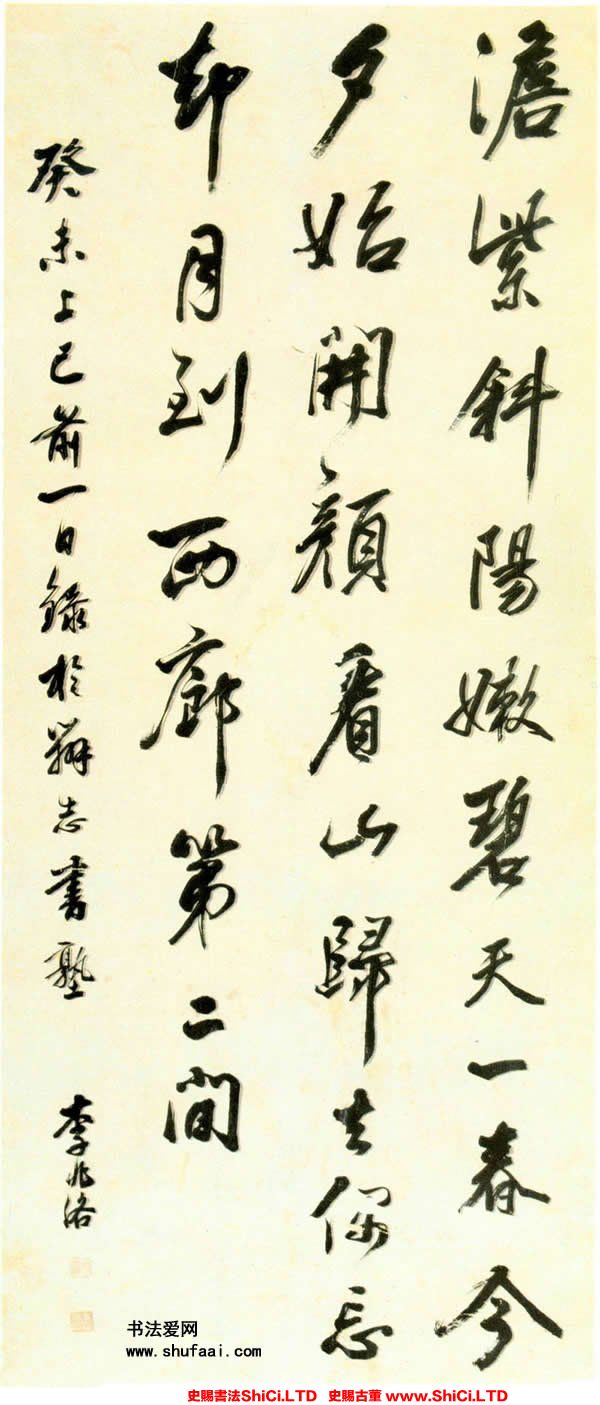 澹紫斜陽嫩碧天一春今
夕始開顏看山歸去偶忘
却月到西廊第二間
癸未上巳前一日錄於辨志書塾
李兆洛
书法爱网
www.shufaai.com
史賜書法ShiCi.LTD 史賜古董 www.ShiCi.LTD